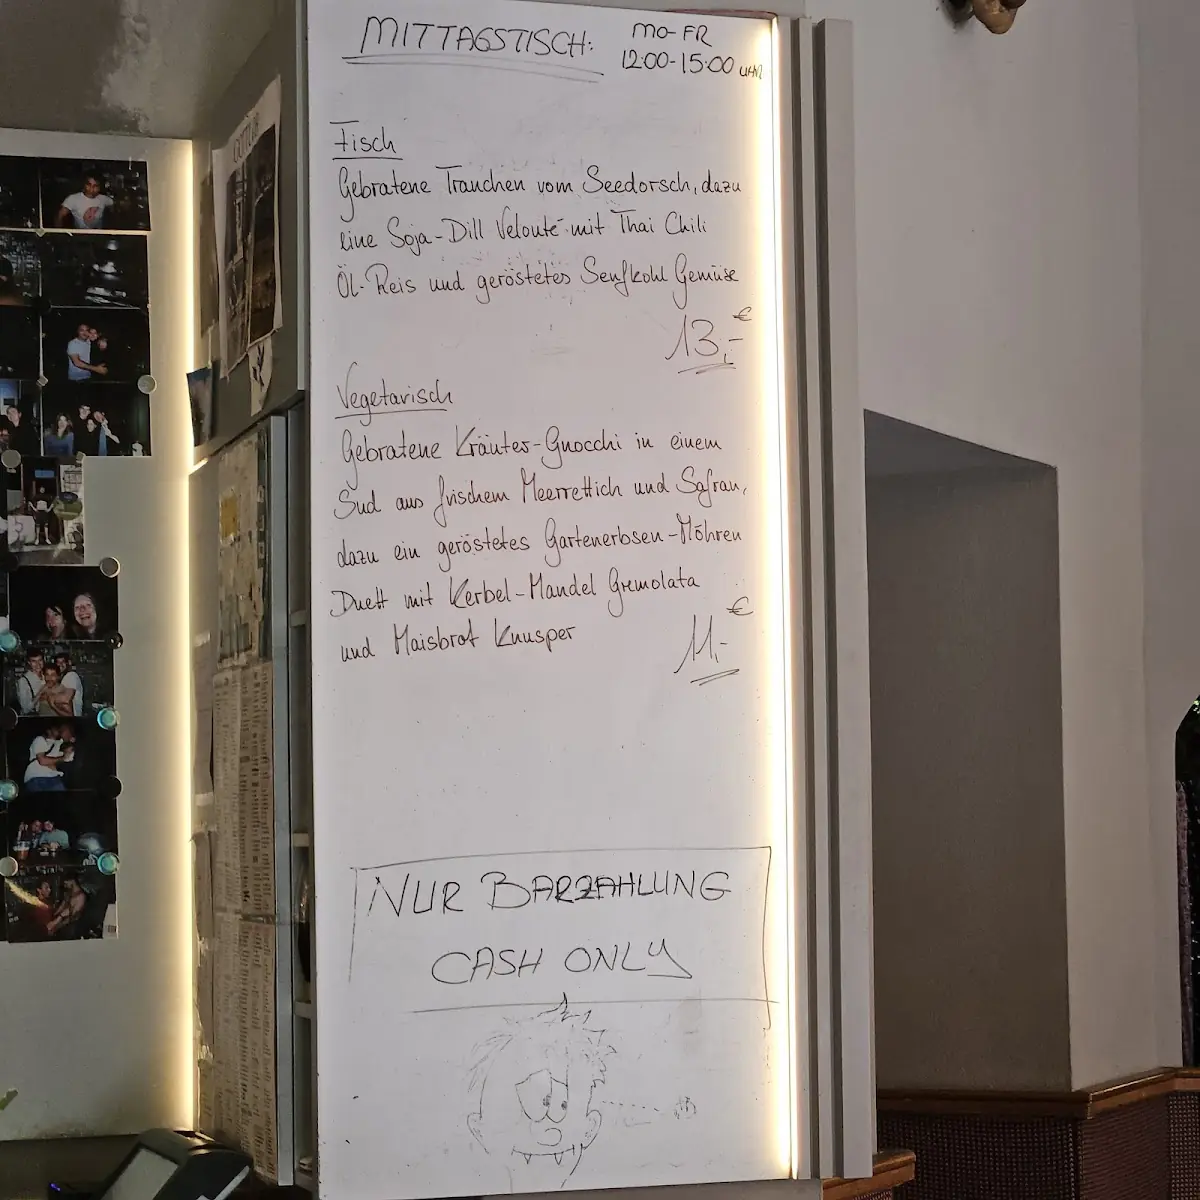 MITTAGSTISCH:
MO-FR
12:00-15:00 UHR
Fisch
Gebratene Tranchen vom Seedorsch, dazu
eine Soja-Dill Velouté mit Thai Chili
Öl-Reis und geröstetes Senfkohl Gemüse
13,- €
Vegetarisch
Gebratene Kräuter-Gnocchi in einem
Sud aus frischem Meerrettich und Safran,
dazu ein geröstetes Gartenerbsen-Möhren
Duett mit Kerbel-Mandel Gremolata
und Maisbrot Knusper
11,- €
NUR BARZAHLUNG
CASH ONLY